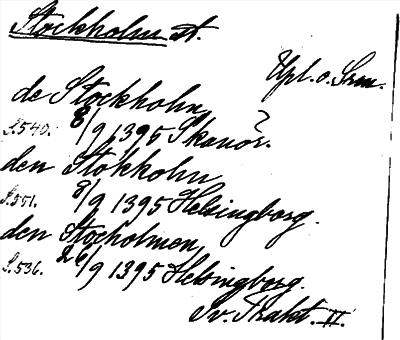 Stockholm st.
Upl. o. Srm.
de Stockholm
S.540. 8/9 1395 Skanör.
den Stokholm
S.551. 8/9 1395 Helsingborg.
den Stocholmen
S.536. 26/9 1395 Helsingborg.
Sv. Trakt. II.